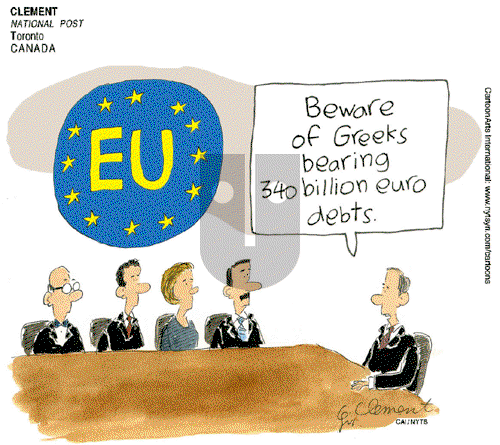 CLEMENT
NATIONAL POST
Toronto
CANADA
EU
Beware
of Greeks
bearing
340 billion euro
debts.
CartoonArts International: www.nytsyn.com/cartoons
Clement
CAI/NYTS